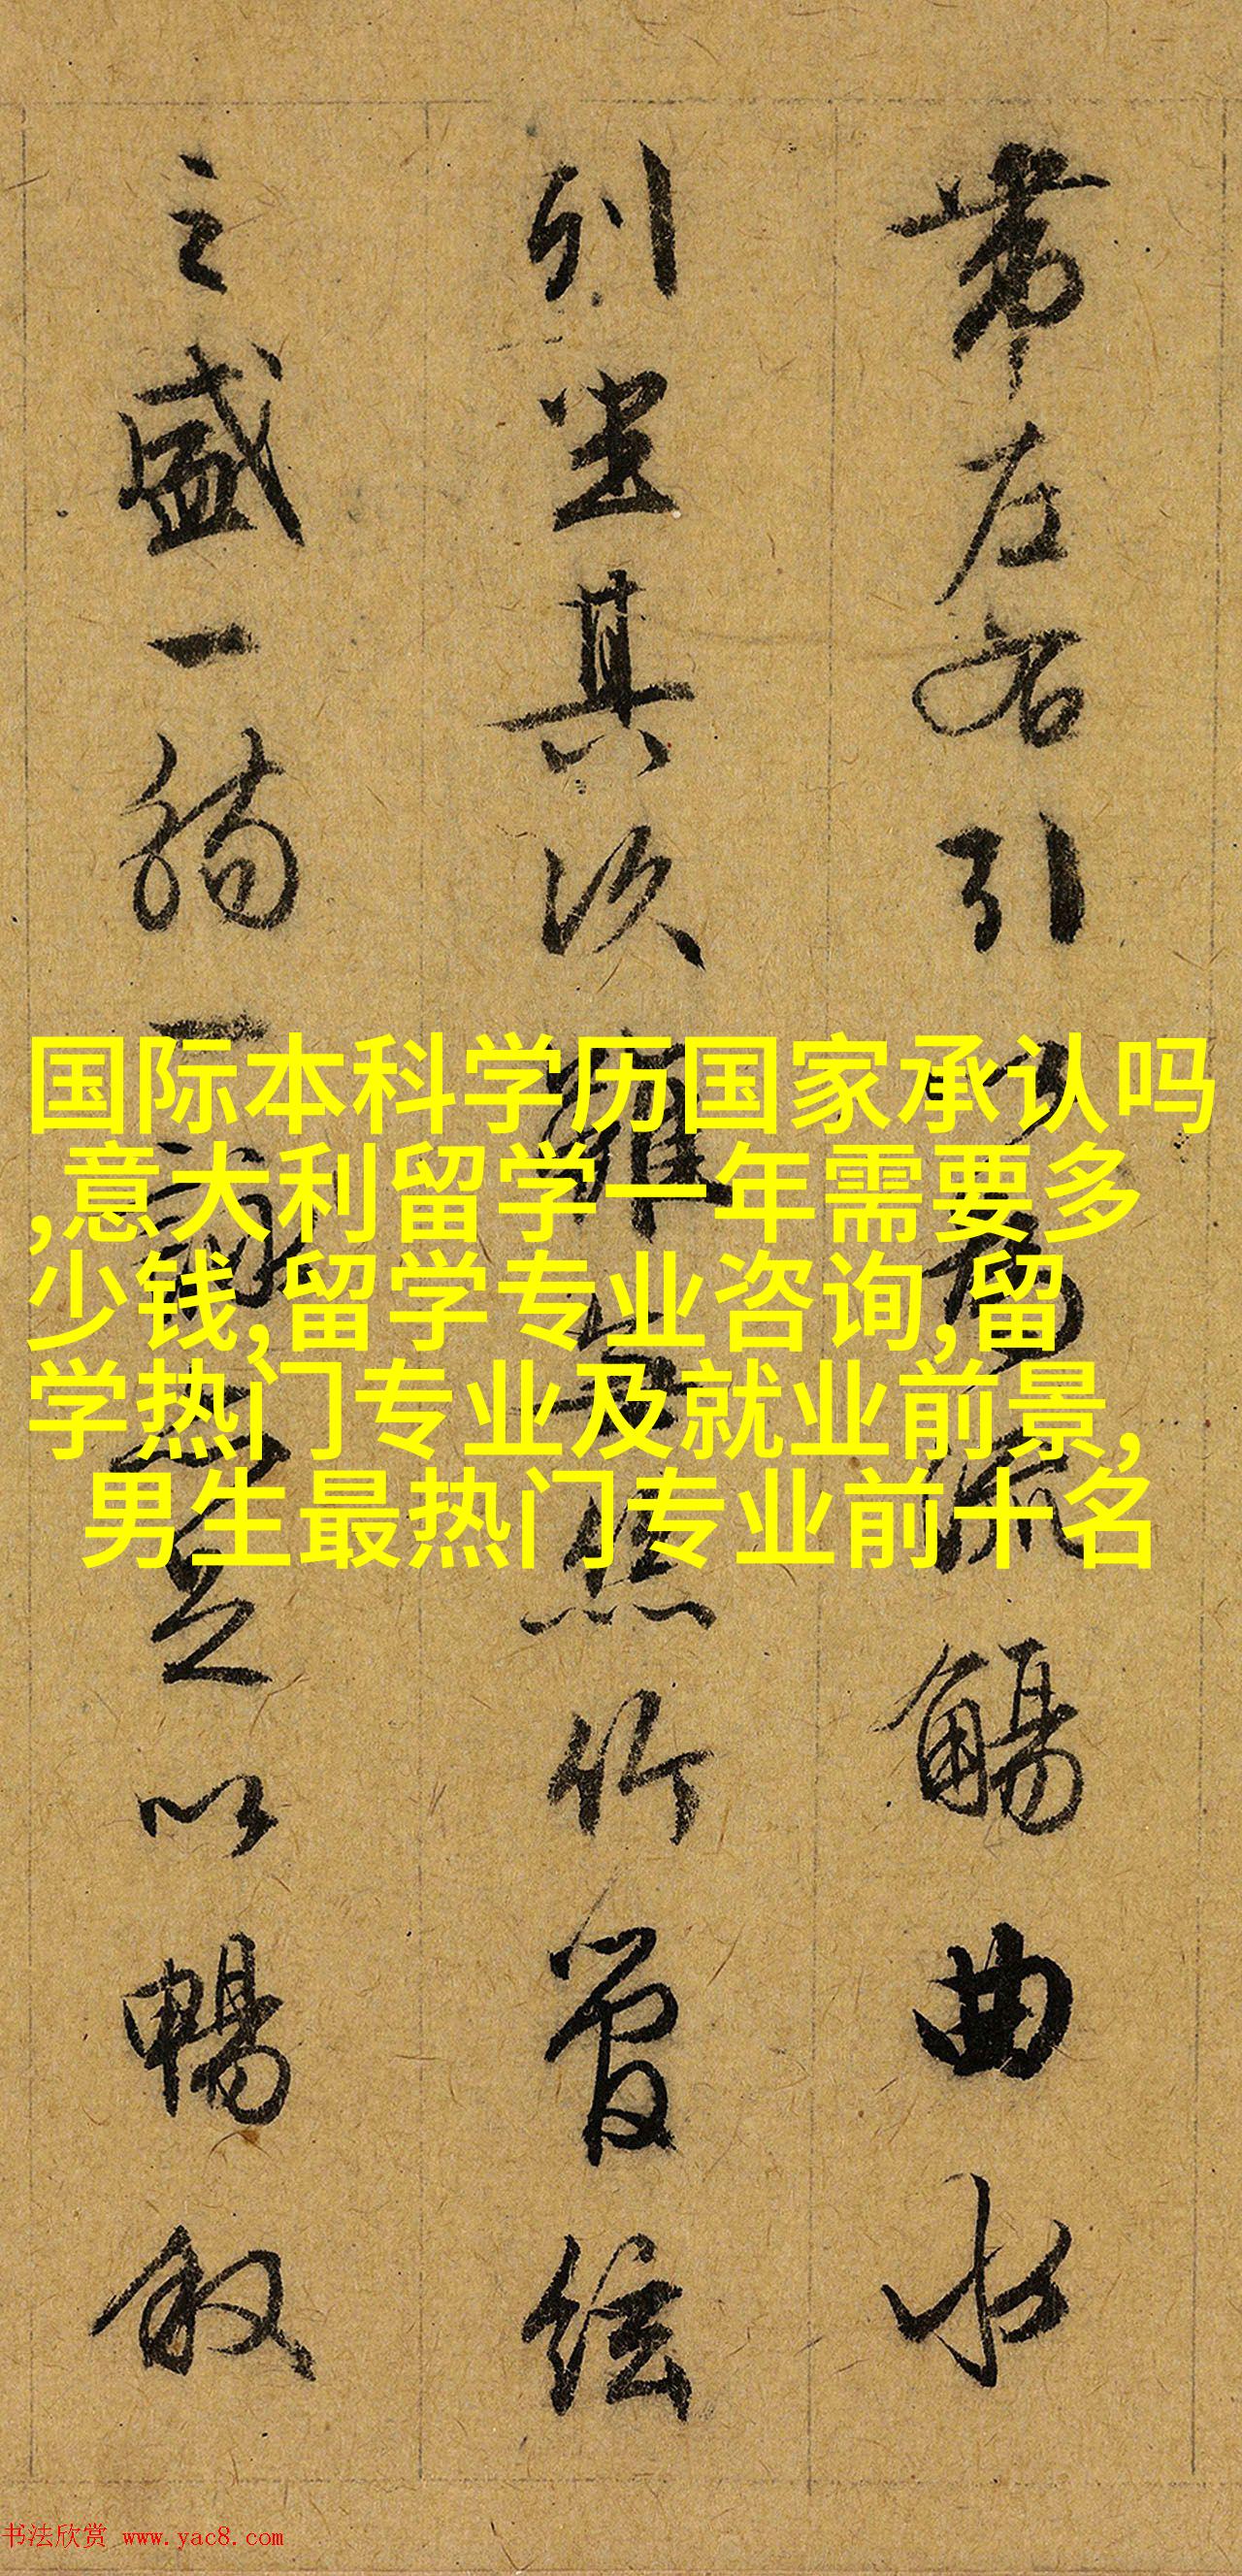 帶左右引以為流觴曲水
列坐其次雖無絲竹管絃
之盛一觴一詠亦足以暢敘
国际本科学历国家承认吗
,意大利留学一年需要多
少钱,留学专业咨询,留
学热门专业及就业前景,
男生最热门专业前十名
书法欣赏 www.yac8.com